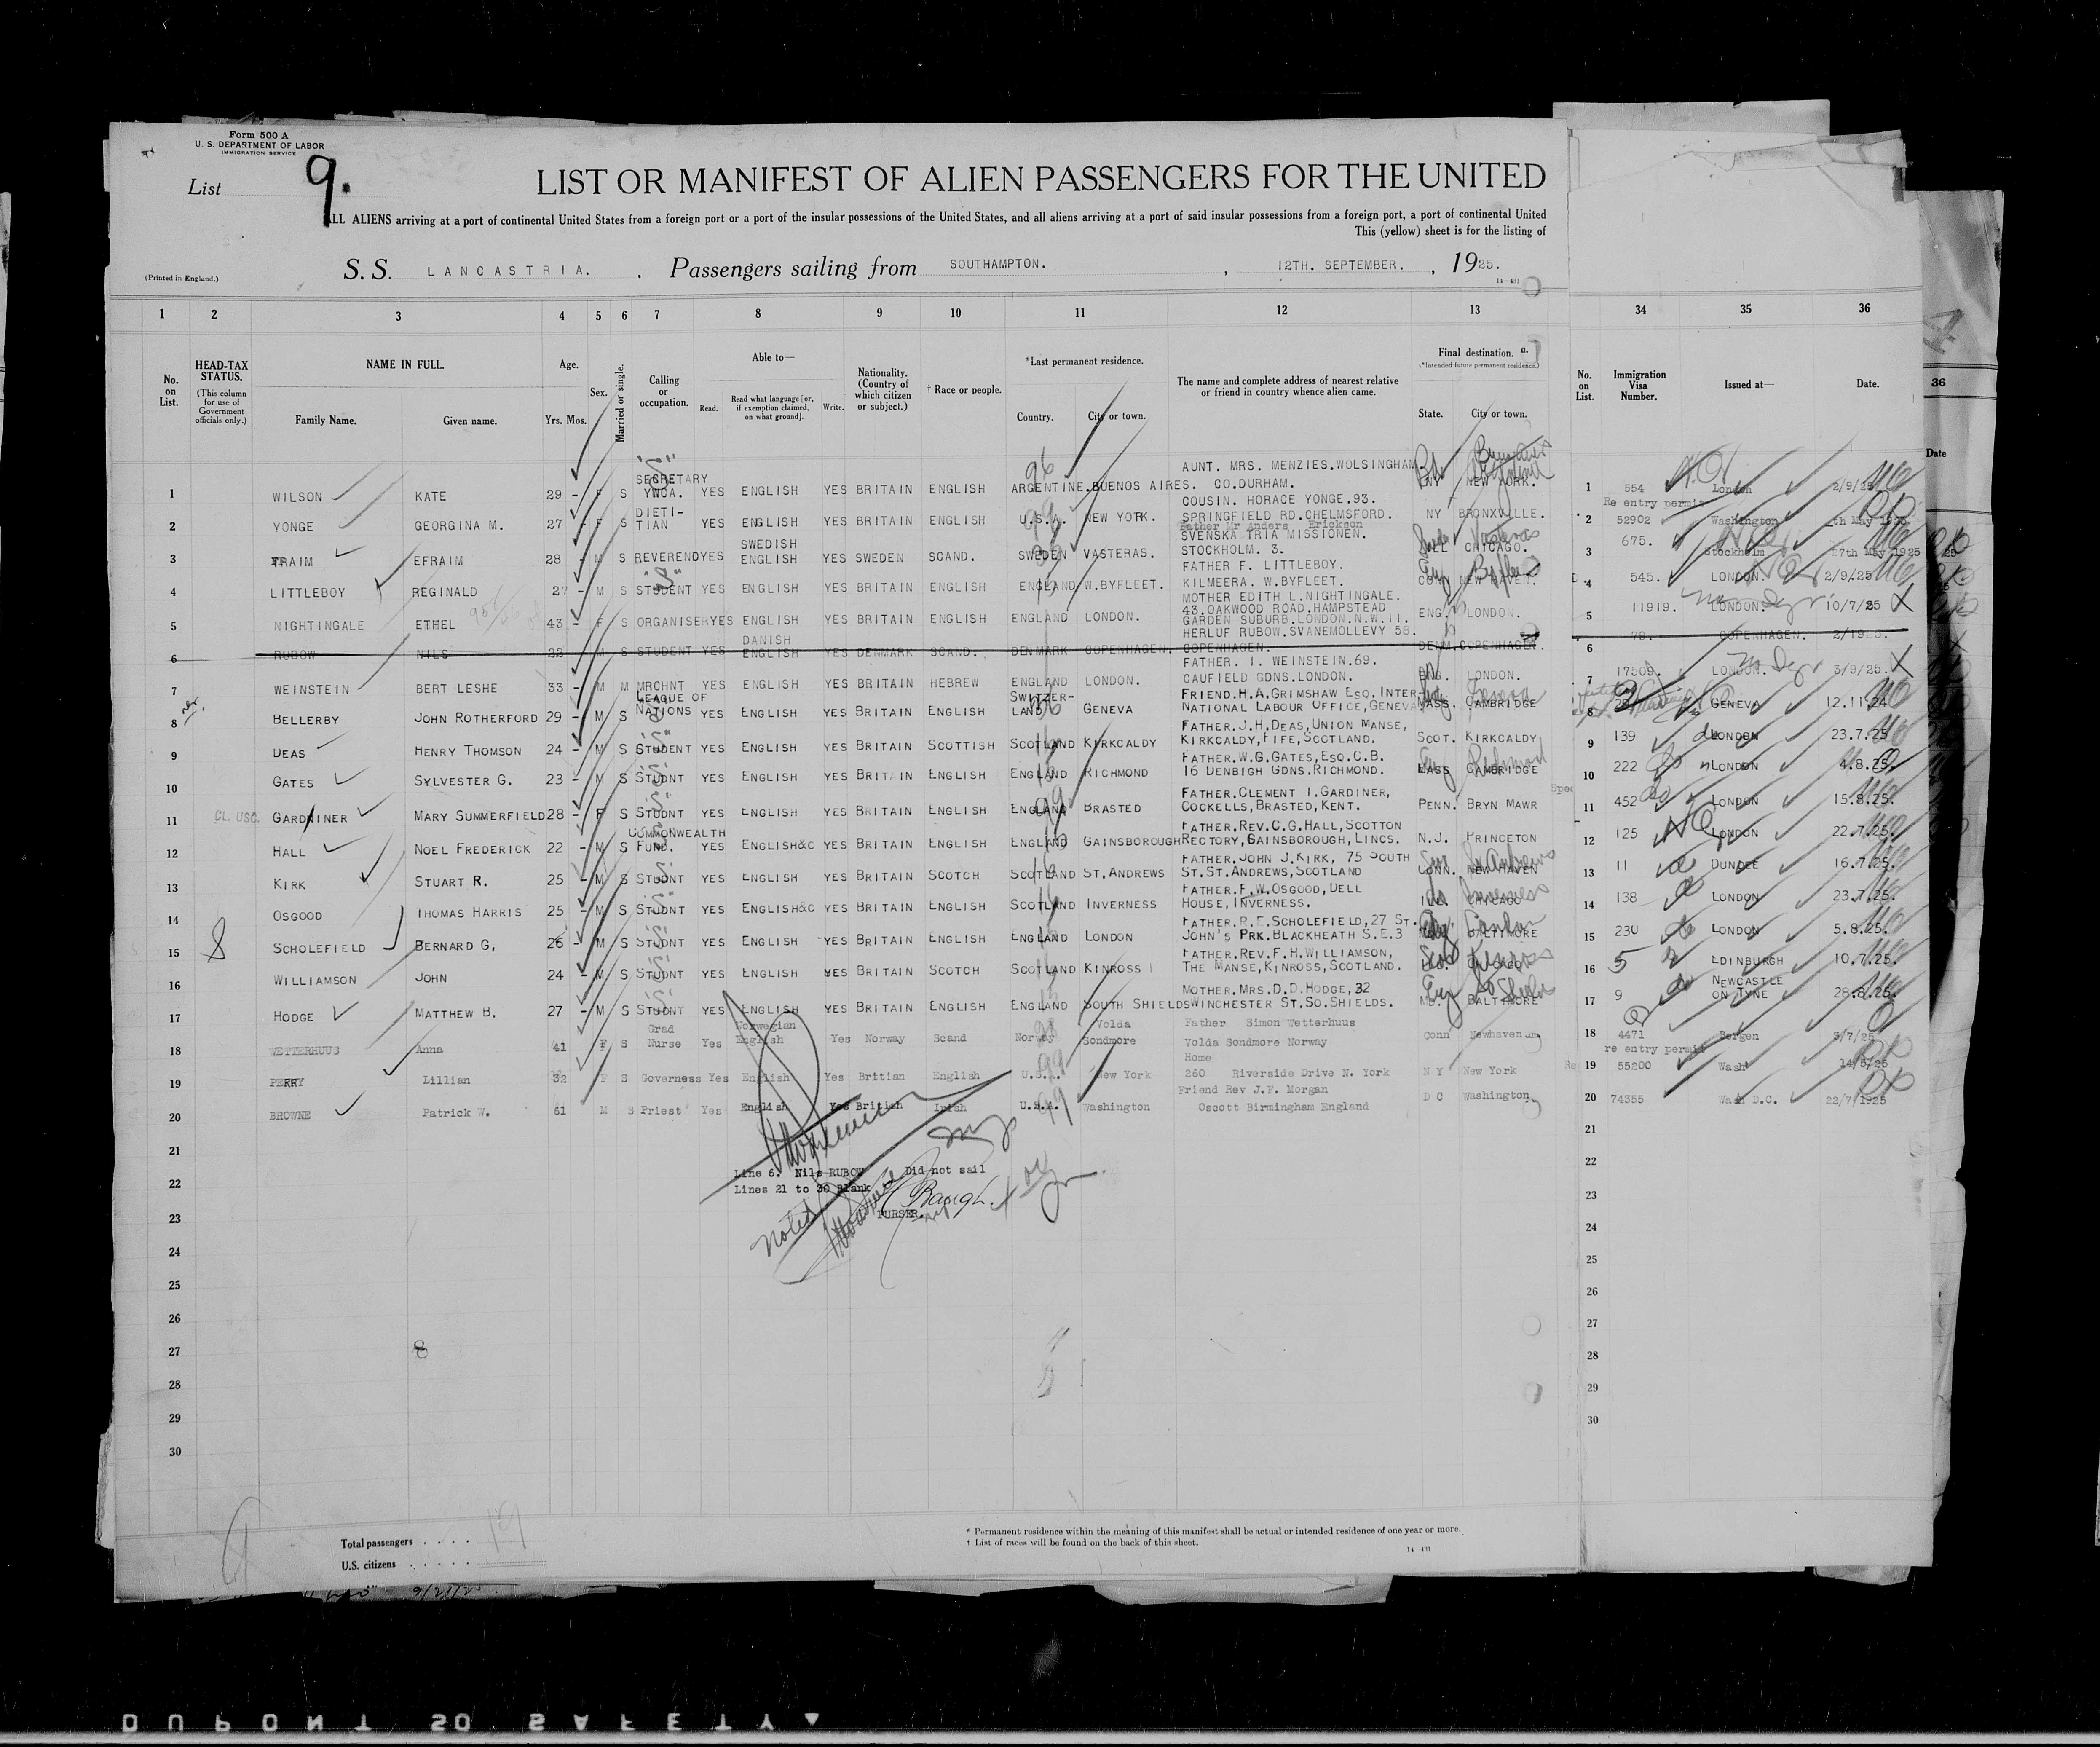 Form 500 A
U. S. DEPARTMENT OF LABOR
IMMIGRATION SERVICE
List 9.
LIST OR MANIFEST OF ALIEN PASSENGERS FOR THE UNITED
ALL ALIENS arriving at a port of continental United States from a foreign port or a port of the insular possessions of the United States, and all aliens arriving at a port of said insular possessions from a foreign port, a port of continental United
This (yellow) sheet is for the listing of
(Printed in England.)
S. S. LANCASTRIA. , Passengers sailing from SOUTHAMPTON. , 12TH. SEPTEMBER. , 1925.
1 2 3 4 5 6 7 8 9 10 11 12 13 34 35 36
No. on List.
HEAD-TAX STATUS.
(This column for use of Government officials only.)
NAME IN FULL.
Family Name. Given name.
Age.
Yrs. Mos.
Sex.
Married or single.
Calling or occupation.
Able to—
Read. Read what language [or, if exemption claimed, on what ground]. Write.
Nationality. (Country of which citizen or subject.)
† Race or people.
*Last permanent residence.
Country. City or town.
The name and complete address of nearest relative or friend in country whence alien came.
Final destination.
(*Intended future permanent residence.)
State. City or town.
No. on List.
Immigration Visa Number.
Issued at—
Date.
36
Date
1 WILSON KATE 29 - F S SECRETARY YWCA. YES ENGLISH YES BRITAIN ENGLISH ARGENTINE. BUENOS AIRES. AUNT. MRS. MENZIES. WOLSINGHAM CO. DURHAM. NY NEW YORK. 1 554 London 2/9/25
2 YONGE GEORGINA M. 27 - F S DIETI-TIAN YES ENGLISH YES BRITAIN ENGLISH U.S.A. NEW YORK. COUSIN. HORACE YONGE. 93. SPRINGFIELD RD. CHELMSFORD. NY BRONXVILLE. 2 Re entry permit 52902 Washington th May 1925
3 FRAIM EFRAIM 28 - M S REVEREND YES SWEDISH ENGLISH YES SWEDEN SCAND. SWEDEN VASTERAS. Father Mr Anders Erickson SVENSKA TRIA MISSIONEN. STOCKHOLM. 3. ILL CHICAGO. 3 675. Stockholm 27th May 1925
4 LITTLEBOY REGINALD 27 - M S STUDENT YES ENGLISH YES BRITAIN ENGLISH ENGLAND W. BYFLEET. FATHER F. LITTLEBOY. KILMEERA. W. BYFLEET. CONN NEW HAVEN. 4 545. LONDON. 2/9/25
5 NIGHTINGALE ETHEL 43 - F S ORGANISER YES ENGLISH YES BRITAIN ENGLISH ENGLAND LONDON. MOTHER EDITH L. NIGHTINGALE. 43. OAKWOOD ROAD. HAMPSTEAD GARDEN SUBURB. LONDON. N.W. 11. ENG. LONDON. 5 11919. LONDON. 10/7/25
6 RUBOW NILS 22 M S STUDENT YES DANISH ENGLISH YES DENMARK SCAND. DENMARK COPENHAGEN. HERLUF RUBOW. SVANEMOLLEVY 58. COPENHAGEN. DENM. COPENHAGEN. 6 79. COPENHAGEN.
7 WEINSTEIN BERT LESHE 33 - M M MRCHNT YES ENGLISH YES BRITAIN HEBREW ENGLAND LONDON. FATHER. I. WEINSTEIN. 69. CAUFIELD GDNS. LONDON. ENG. LONDON. 7 17509. LONDON. 3/9/25.
8 BELLERBY JOHN ROTHERFORD 29 - M S LEAGUE OF NATIONS YES ENGLISH YES BRITAIN ENGLISH SWITZER-LAND GENEVA FRIEND. H.A. GRIMSHAW ESQ. INTER NATIONAL LABOUR OFFICE, GENEVA MASS. CAMBRIDGE 8 GENEVA 12.11.24
9 DEAS HENRY THOMSON 24 - M S STUDENT YES ENGLISH YES BRITAIN SCOTTISH SCOTLAND KIRKCALDY FATHER. J.H. DEAS, UNION MANSE, KIRKCALDY, FIFE, SCOTLAND. SCOT. KIRKCALDY 9 139 LONDON 23.7.25
10 GATES SYLVESTER G. 23 - M S STUDNT YES ENGLISH YES BRITAIN ENGLISH ENGLAND RICHMOND FATHER. W.G. GATES, ESQ. C.B. 16 DENBIGH GDNS. RICHMOND. MASS CAMBRIDGE 10 222 LONDON 4.8.25.
11 CL. USC. GARDINER MARY SUMMERFIELD 28 - F S STUDNT YES ENGLISH YES BRITAIN ENGLISH ENGLAND BRASTED FATHER. CLEMENT I. GARDINER, COCKELLS, BRASTED, KENT. PENN. BRYN MAWR 11 452 LONDON 15.8.25.
12 HALL NOEL FREDERICK 22 - M S COMMONWEALTH FUND. YES ENGLISH&C YES BRITAIN ENGLISH ENGLAND GAINSBOROUGH FATHER. REV. C.G. HALL, SCOTTON RECTORY, GAINSBOROUGH, LINCS. N.J. PRINCETON 12 125 LONDON 22.7.25.
13 KIRK STUART R. 25 - M S STUDNT YES ENGLISH YES BRITAIN SCOTCH SCOTLAND ST. ANDREWS FATHER. JOHN J. KIRK, 75 SOUTH ST. ST. ANDREWS, SCOTLAND CONN. NEW HAVEN 13 11 DUNDEE 16.7.25.
14 OSGOOD THOMAS HARRIS 25 - M S STUDNT YES ENGLISH&C YES BRITAIN ENGLISH SCOTLAND INVERNESS FATHER. F.W. OSGOOD, DELL HOUSE, INVERNESS. ILLS. CHICAGO 14 138 LONDON 23.7.25.
15 SCHOLEFIELD BERNARD G, 26 - M S STUDNT YES ENGLISH YES BRITAIN ENGLISH ENGLAND LONDON FATHER. R.E. SCHOLEFIELD, 27 ST. JOHN'S PRK. BLACKHEATH S.E.3 BALTIMORE 15 230 LONDON 5.8.25.
16 WILLIAMSON JOHN 24 - M S STUDNT YES ENGLISH YES BRITAIN SCOTCH SCOTLAND KINROSS FATHER. REV. F.H. WILLIAMSON, THE MANSE, KINROSS, SCOTLAND. CHICAGO 16 5 EDINBURGH 10.7.25.
17 HODGE MATTHEW B. 27 - M S STUDNT YES ENGLISH YES BRITAIN ENGLISH ENGLAND SOUTH SHIELDS MOTHER. MRS. D.D. HODGE, 32 WINCHESTER ST. SO. SHIELDS. MD. BALTIMORE 17 9 NEWCASTLE ON TYNE 28.8.25.
18 WETTERHUUS Anna 41 F S Grad Nurse Yes Norwegian English Yes Norway Scand Norway Volda Sondmore Father Simon Wetterhuus Volda Sondmore Norway Conn Newhaven 18 4471 Bergen 3/7/25
19 PERRY Lillian 32 F S Governess Yes English Yes Britian English U.S.A. New York Home 260 Riverside Drive N. York N Y New York 19 re entry permit 55200 Wash 14/5/25
20 BROWNE Patrick W. 61 M S Priest Yes English Yes British Irish U.S.A. Washington Friend Rev J.F. Morgan Oscott Birmingham England D C Washington 20 74355 Wash D.C. 22/7/1925
21 21
22 22
23 23
24 24
25 25
26 26
27 27
28 28
29 29
30 30
Line 6. Nils RUBOW Did not sail
Lines 21 to 30 Blank
PURSER.
Noted
8
Total passengers . . . . 19
U.S. citizens . . . . .
* Permanent residence within the meaning of this manifest shall be actual or intended residence of one year or more.
† List of races will be found on the back of this sheet.
DUPONT 50 SAFETY